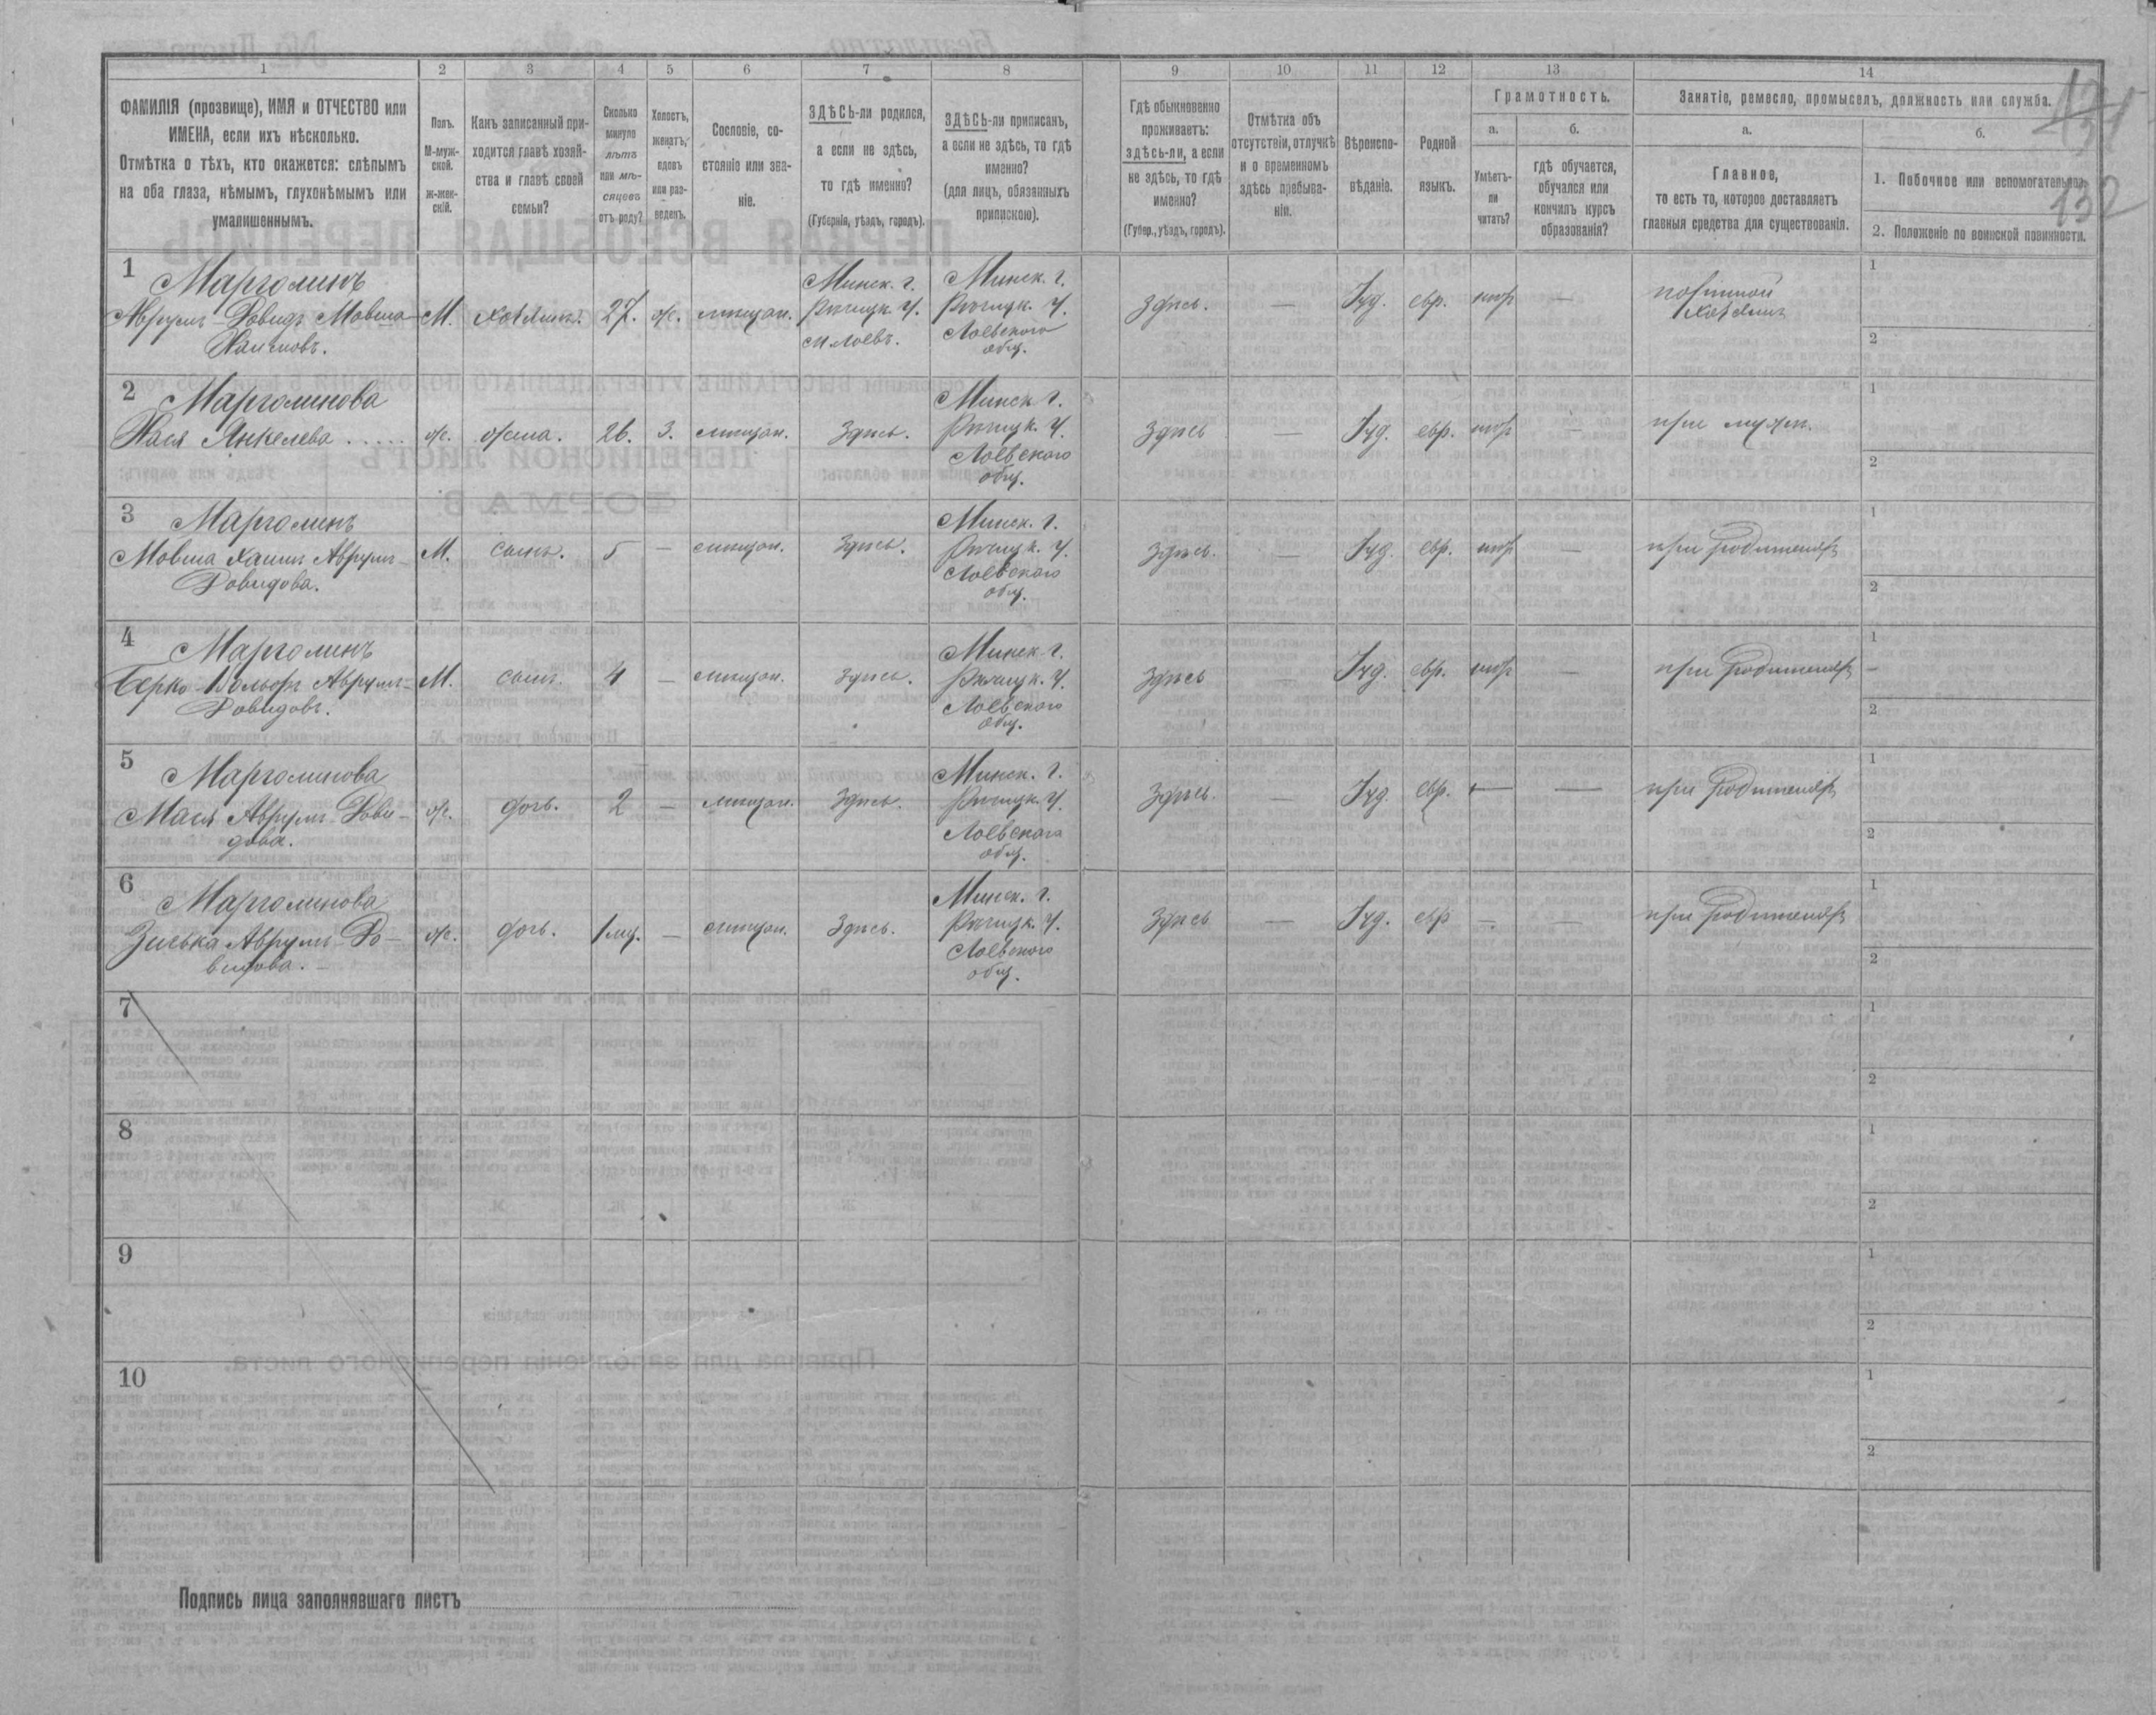 1 2 3 4 5 6 7 8 9 10 11 12 13 14
ФАМИЛІЯ (прозвище), ИМЯ и ОТЧЕСТВО или
ИМЕНА, если ихъ нѣсколько.
Отмѣтка о тѣхъ, кто окажется: слѣпымъ
на оба глаза, нѣмымъ, глухонѣмымъ или
умалишеннымъ.
Полъ.
М-муж-
ской.
ж-жен-
скій.
Какъ записанный при-
ходится главѣ хозяй-
ства и главѣ своей
семьи?
Сколько
минуло
лѣтъ
или мѣ-
сяцевъ
отъ роду?
Холостъ,
женатъ,
вдовъ
или раз-
веденъ.
Сословіе, со-
стояніе или зва-
ніе.
ЗДѢСЬ-ли родился,
а если не здѣсь,
то гдѣ именно?
(Губернія, уѣздъ, городъ).
ЗДѢСЬ-ли приписанъ,
а если не здѣсь, то гдѣ
именно?
(для лицъ, обязанныхъ
припискою).
Гдѣ обыкновенно
проживаетъ:
здѣсь-ли, а если
не здѣсь, то гдѣ
именно?
(Губер., уѣздъ, городъ).
Отмѣтка объ
отсутствіи, отлучкѣ
и о временномъ
здѣсь пребыва-
ніи.
Вѣроиспо-
вѣданіе.
Родной
языкъ.
Грамотность.
а.
Умѣетъ-
ли
читать?
б.
гдѣ обучается,
обучался или
кончилъ курсъ
образованія?
Занятіе, ремесло, промыселъ, должность или служба.
а.
Главное,
то есть то, которое доставляетъ
главныя средства для существованія.
б.
1. Побочное или вспомогательное.
2. Положеніе по воинской повинности.
132
1 Марголинъ
Аврумъ-Довидъ Мовша
Хаимовъ.
М. хозяинъ. 27. ж. мѣщан.
Минск. г.
Рѣчицк. у.
м. Лоевъ.
Минск. г.
Рѣчицк. у.
Лоевского
общ.
здѣсь. — Іуд. евр. —
хозяинъ
1
2
2 Марголинова
Хася Янкелева .....
ж. жена. 26. З. мѣщан. Здѣсь.
Минск г.
Рѣчицк. у.
Лоевского
общ.
здѣсь — Іуд. евр. —
при мужѣ.
1
2
3 Марголинъ
Мовша Хаимъ Аврумъ-
Довидова.
М. сынъ. 5 — мѣщан. Здѣсь.
Минск. г.
Рѣчицк. у.
Лоевского
общ.
здѣсь. — Іуд. евр. —
при родителяхъ
1
2
4 Марголинъ
Берко-Вольфъ Аврумъ-
Довидовъ.
М. сынъ. 4 — мѣщан. Здѣсь.
Минск г.
Рѣчицк. у.
Лоевского
общ.
здѣсь — Іуд. евр. —
при родителяхъ
1
2
5 Марголинова
Мася Аврумъ-Дови-
дова.
ж. дочь. 2 — мѣщан. Здѣсь.
Минск. г.
Рѣчицк. у.
Лоевского
общ.
Здѣсь. — Іуд. евр. — —
при родителяхъ
1
2
6 Марголинова
Зиська Аврумъ-До-
видова.
ж. дочь. 1 мц. — мѣщан. Здѣсь.
Минск. г.
Рѣчицк. у.
Лоевского
общ.
Здѣсь — Іуд. евр — —
при родителяхъ
1
2
7
1
2
8
1
2
9
1
2
10
1
2
Подпись лица заполнявшаго листъ